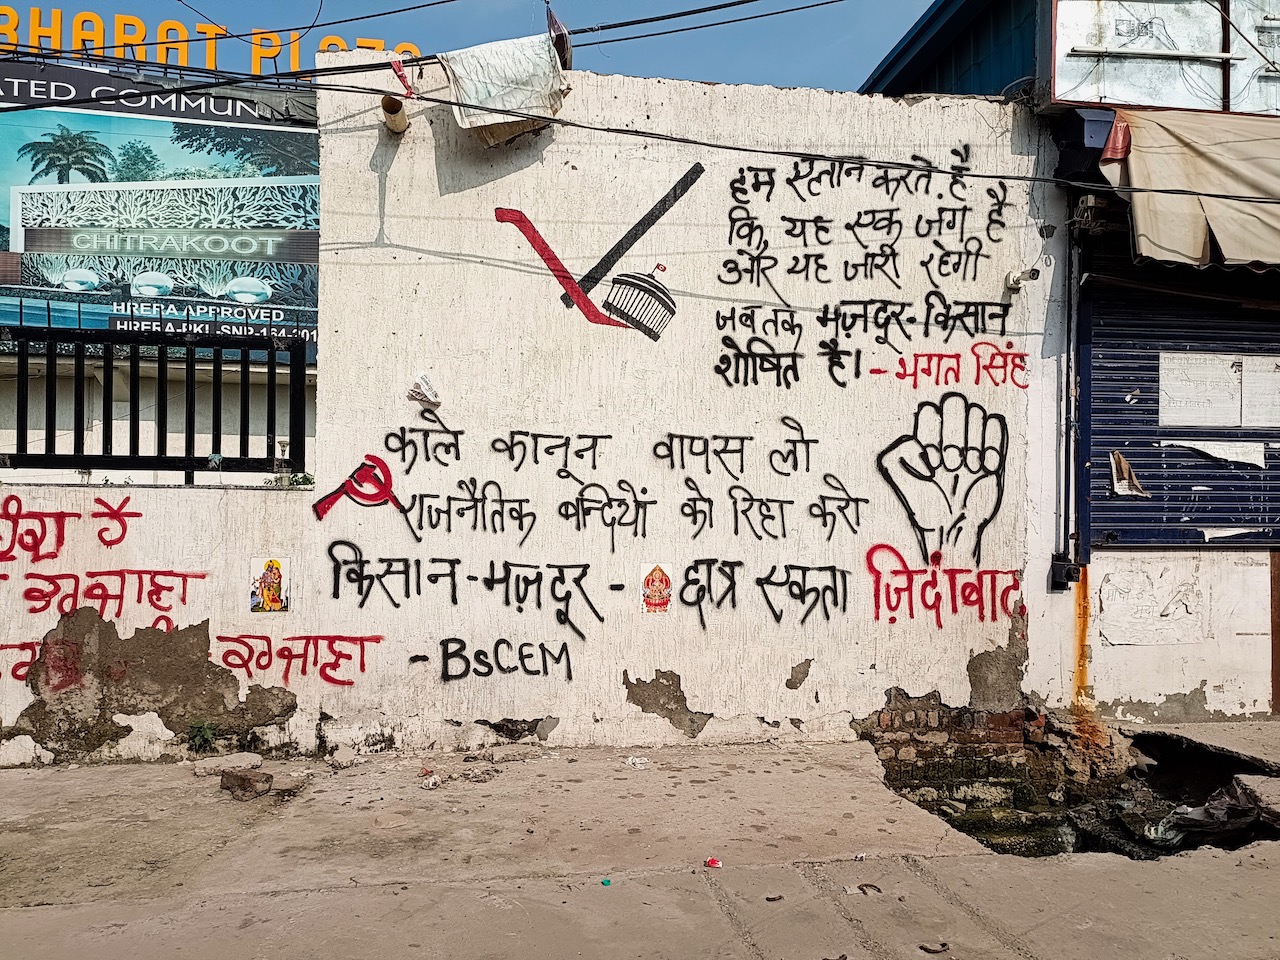 BHARAT PLAZA
ATED COMMUN
CHITRAKOOT
HRERA APPROVED
HRERA-PKL-SNP-164-201
हम एलान करते है
कि, यह एक जंग है
और यह जारी रहेगी
जब तक मज़दूर-किसान
शोषित है। - भगत सिंह
काले कानून वापस लो
राजनैतिक बन्दियों को रिहा करो
किसान-मज़दूर-छात्र एकता ज़िदांबाद
- BsCEM
है